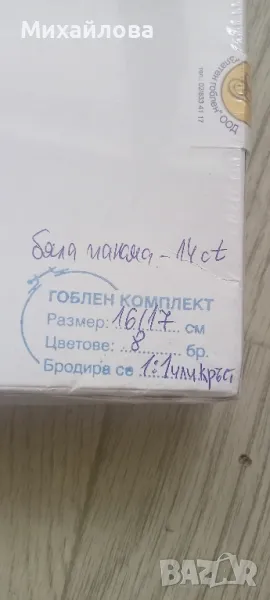 Михайлова
"Златен гоблен" ООД
тел.: 02/833 41 17
бяла панама - 14 ct
ГОБЛЕН КОМПЛЕКТ
Размер: 16/17 см
Цветове: 8 бр.
Бродира се 1:1 или кръст
BAZAR